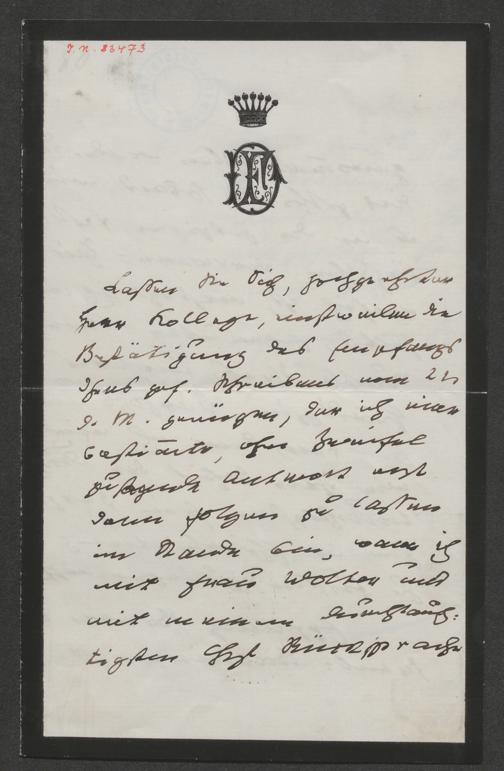 I. N. 83473
Lassen Sie Sich, hochgeehrter
Herr Kollege, einstweilen die
Bestätigung des Empfangs
Ihres gef. Schreibens vom 21
d. M. genügen, da ich eine
ohne Zweifel
Antwort erst
dann folgen zu lassen
im Stande bin, wenn ich
mit Frau Wolter und
mit meinem durchlauch-
tigsten Chef Rücksprache